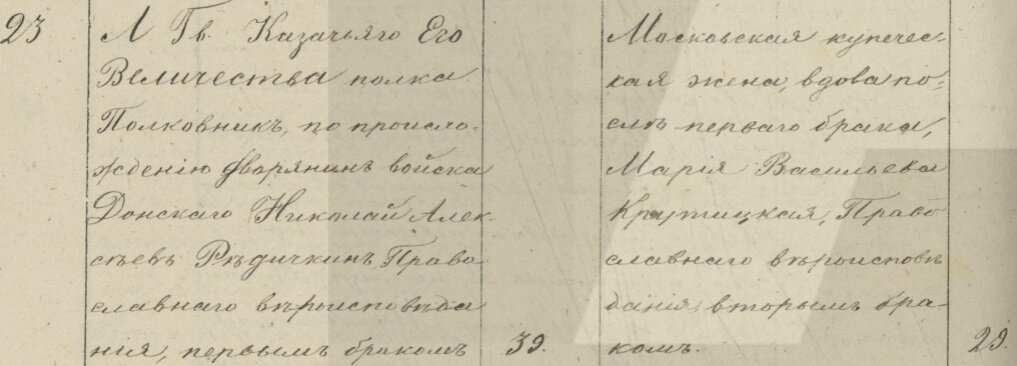 23
Л Гв. Казачьяго Его
Величества полка
Полковникъ, по происхо-
жденію дворянинъ войска
Донскаго Николай Алек-
сѣевъ Рѣдичкинъ, Право
славнаго вѣроисповѣда
нія, первымъ бракомъ
39.
Московская купечес-
кая жена, вдова по-
слѣ перваго брака,
Марія Васильева
Крутицкая, Право
славнаго вѣроисповѣ
данія, вторымъ бра-
комъ.
29.